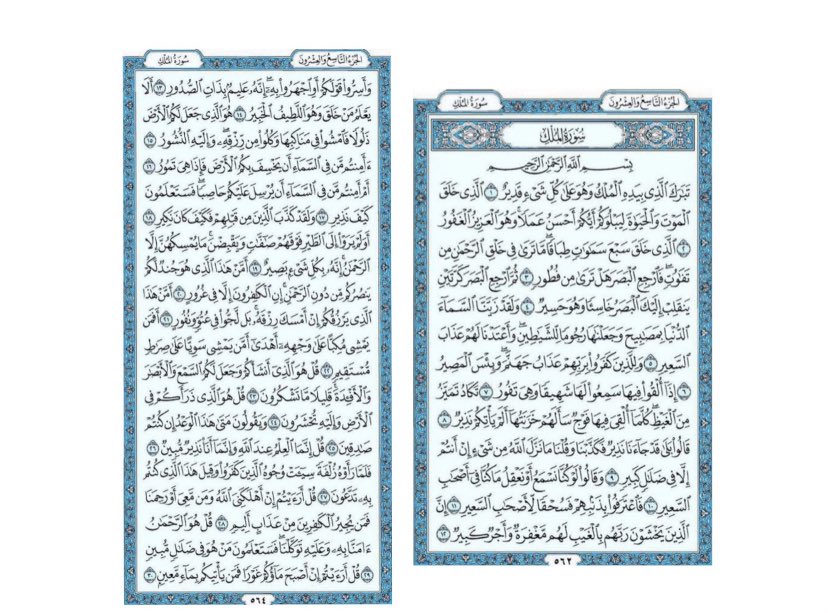 الجزء التاسع والعشرون
سورة الملك
سُورَةُ المُلْكِ
بِسْمِ اللَّهِ الرَّحْمَٰنِ الرَّحِيمِ
تَبَٰرَكَ ٱلَّذِى بِيَدِهِ ٱلْمُلْكُ وَهُوَ عَلَىٰ كُلِّ شَىْءٍ قَدِيرٌ ١ ٱلَّذِى خَلَقَ
ٱلْمَوْتَ وَٱلْحَيَوٰةَ لِيَبْلُوَكُمْ أَيُّكُمْ أَحْسَنُ عَمَلًا وَهُوَ ٱلْعَزِيزُ ٱلْغَفُورُ
٢ ٱلَّذِى خَلَقَ سَبْعَ سَمَٰوَٰتٍ طِبَاقًا مَّا تَرَىٰ فِى خَلْقِ ٱلرَّحْمَٰنِ مِن
تَفَٰوُتٍ فَٱرْجِعِ ٱلْبَصَرَ هَلْ تَرَىٰ مِن فُطُورٍ ٣ ثُمَّ ٱرْجِعِ ٱلْبَصَرَ كَرَّتَيْنِ
يَنقَلِبْ إِلَيْكَ ٱلْبَصَرُ خَاسِئًا وَهُوَ حَسِيرٌ ٤ وَلَقَدْ زَيَّنَّا ٱلسَّمَآءَ
ٱلدُّنْيَا بِمَصَٰبِيحَ وَجَعَلْنَٰهَا رُجُومًا لِّلشَّيَٰطِينِ وَأَعْتَدْنَا لَهُمْ عَذَابَ
ٱلسَّعِيرِ ٥ وَلِلَّذِينَ كَفَرُوا۟ بِرَبِّهِمْ عَذَابُ جَهَنَّمَ وَبِئْسَ ٱلْمَصِيرُ
٦ إِذَآ أُلْقُوا۟ فِيهَا سَمِعُوا۟ لَهَا شَهِيقًا وَهِىَ تَفُورُ ٧ تَكَادُ تَمَيَّزُ
مِنَ ٱلْغَيْظِ كُلَّمَآ أُلْقِىَ فِيهَا فَوْجٌ سَأَلَهُمْ خَزَنَتُهَآ أَلَمْ يَأْتِكُمْ نَذِيرٌ ٨
قَالُوا۟ بَلَىٰ قَدْ جَآءَنَا نَذِيرٌ فَكَذَّبْنَا وَقُلْنَا مَا نَزَّلَ ٱللَّهُ مِن شَىْءٍ إِنْ أَنتُمْ
إِلَّا فِى ضَلَٰلٍ كَبِيرٍ ٩ وَقَالُوا۟ لَوْ كُنَّا نَسْمَعُ أَوْ نَعْقِلُ مَا كُنَّا فِىٓ أَصْحَٰبِ
ٱلسَّعِيرِ ١٠ فَٱعْتَرَفُوا۟ بِذَنۢبِهِمْ فَسُحْقًا لِّأَصْحَٰبِ ٱلسَّعِيرِ ١١ إِنَّ
ٱلَّذِينَ يَخْشَوْنَ رَبَّهُم بِٱلْغَيْبِ لَهُم مَّغْفِرَةٌ وَأَجْرٌ كَبِيرٌ ١٢
٥٦٢
الجزء التاسع والعشرون
سورة الملك
وَأَسِرُّوا۟ قَوْلَكُمْ أَوِ ٱجْهَرُوا۟ بِهِۦٓ إِنَّهُۥ عَلِيمٌۢ بِذَاتِ ٱلصُّدُورِ ١٣ أَلَا
يَعْلَمُ مَنْ خَلَقَ وَهُوَ ٱللَّطِيفُ ٱلْخَبِيرُ ١٤ هُوَ ٱلَّذِى جَعَلَ لَكُمُ ٱلْأَرْضَ
ذَلُولًا فَٱمْشُوا۟ فِى مَنَاكِبِهَا وَكُلُوا۟ مِن رِّزْقِهِۦ وَإِلَيْهِ ٱلنُّشُورُ ١٥
ءَأَمِنتُم مَّن فِى ٱلسَّمَآءِ أَن يَخْسِفَ بِكُمُ ٱلْأَرْضَ فَإِذَا هِىَ تَمُورُ ١٦
أَمْ أَمِنتُم مَّن فِى ٱلسَّمَآءِ أَن يُرْسِلَ عَلَيْكُمْ حَاصِبًا فَسَتَعْلَمُونَ
كَيْفَ نَذِيرِ ١٧ وَلَقَدْ كَذَّبَ ٱلَّذِينَ مِن قَبْلِهِمْ فَكَيْفَ كَانَ نَكِيرِ ١٨
أَوَلَمْ يَرَوْا۟ إِلَى ٱلطَّيْرِ فَوْقَهُمْ صَٰٓفَّٰتٍ وَيَقْبِضْنَ مَا يُمْسِكُهُنَّ إِلَّا
ٱلرَّحْمَٰنُ إِنَّهُۥ بِكُلِّ شَىْءٍۭ بَصِيرٌ ١٩ أَمَّنْ هَٰذَا ٱلَّذِى هُوَ جُندٌ لَّكُمْ
يَنصُرُكُم مِّن دُونِ ٱلرَّحْمَٰنِ إِنِ ٱلْكَٰفِرُونَ إِلَّا فِى غُرُورٍ ٢٠ أَمَّنْ هَٰذَا
ٱلَّذِى يَرْزُقُكُمْ إِنْ أَمْسَكَ رِزْقَهُۥ بَل لَّجُّوا۟ فِى عُتُوٍّ وَنُفُورٍ ٢١ أَفَمَن
يَمْشِى مُكِبًّا عَلَىٰ وَجْهِهِۦٓ أَهْدَىٰٓ أَمَّن يَمْشِى سَوِيًّا عَلَىٰ صِرَٰطٍ
مُّسْتَقِيمٍ ٢٢ قُلْ هُوَ ٱلَّذِىٓ أَنشَأَكُمْ وَجَعَلَ لَكُمُ ٱلسَّمْعَ وَٱلْأَبْصَٰرَ
وَٱلْأَفْـِٔدَةَ قَلِيلًا مَّا تَشْكُرُونَ ٢٣ قُلْ هُوَ ٱلَّذِى ذَرَأَكُمْ فِى
ٱلْأَرْضِ وَإِلَيْهِ تُحْشَرُونَ ٢٤ وَيَقُولُونَ مَتَىٰ هَٰذَا ٱلْوَعْدُ إِن كُنتُمْ
صَٰدِقِينَ ٢٥ قُلْ إِنَّمَا ٱلْعِلْمُ عِندَ ٱللَّهِ وَإِنَّمَآ أَنَا۠ نَذِيرٌ مُّبِينٌ ٢٦
فَلَمَّا رَأَوْهُ زُلْفَةً سِيٓـَٔتْ وُجُوهُ ٱلَّذِينَ كَفَرُوا۟ وَقِيلَ هَٰذَا ٱلَّذِى كُنتُم
بِهِۦ تَدَّعُونَ ٢٧ قُلْ أَرَءَيْتُمْ إِنْ أَهْلَكَنِىَ ٱللَّهُ وَمَن مَّعِىَ أَوْ رَحِمَنَا
فَمَن يُجِيرُ ٱلْكَٰفِرِينَ مِنْ عَذَابٍ أَلِيمٍ ٢٨ قُلْ هُوَ ٱلرَّحْمَٰنُ
ءَامَنَّا بِهِۦ وَعَلَيْهِ تَوَكَّلْنَا فَسَتَعْلَمُونَ مَنْ هُوَ فِى ضَلَٰلٍ مُّبِينٍ
٢٩ قُلْ أَرَءَيْتُمْ إِنْ أَصْبَحَ مَآؤُكُمْ غَوْرًا فَمَن يَأْتِيكُم بِمَآءٍ مَّعِينٍۭ ٣٠
٥٦٤